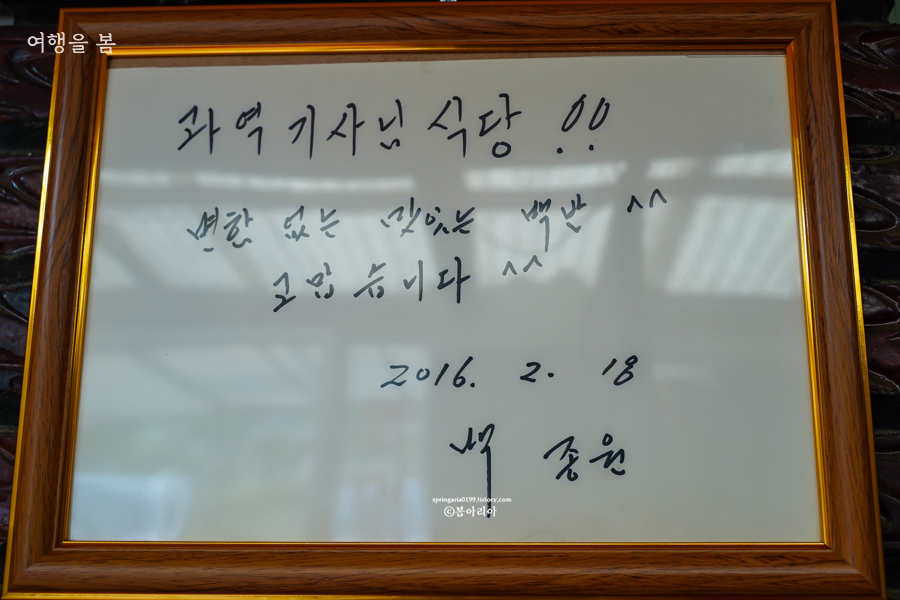 여행을 봄
과역 기사님 식당 !!
변함 없는 맛있는 백반 ^^
고맙습니다 ^^
2016. 2. 18
백 종원
springaria0199.tistory.com
©봄아리아